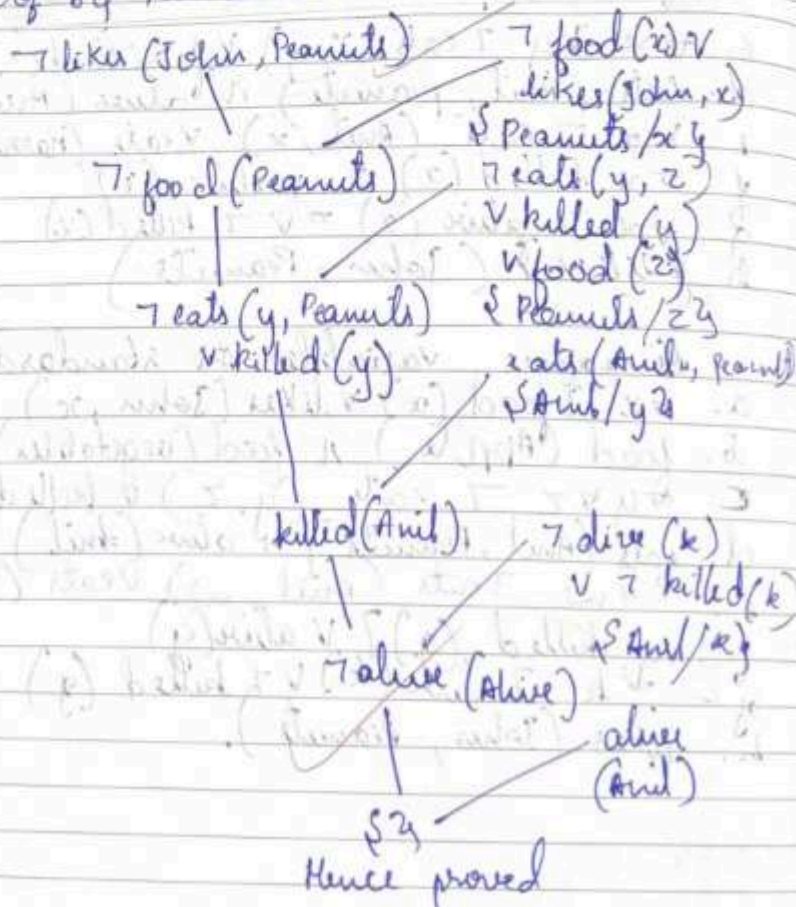 of by
¬ likes (John, Peanuts) ¬ food (x) V
likes (John, x)
{Peanuts/x}
¬ food (Peanuts) ¬ eats (y, z)
V killed (y)
V food (z)
¬ eats (y, Peanuts) {Peanuts/z}
V killed (y) eats (Anil, Peanuts)
{Anil/y}
killed (Anil) ¬ alive (k)
V ¬ killed (k)
{Anil/k}
¬ alive (Alive)
alive
(Anil)
{}
Hence proved